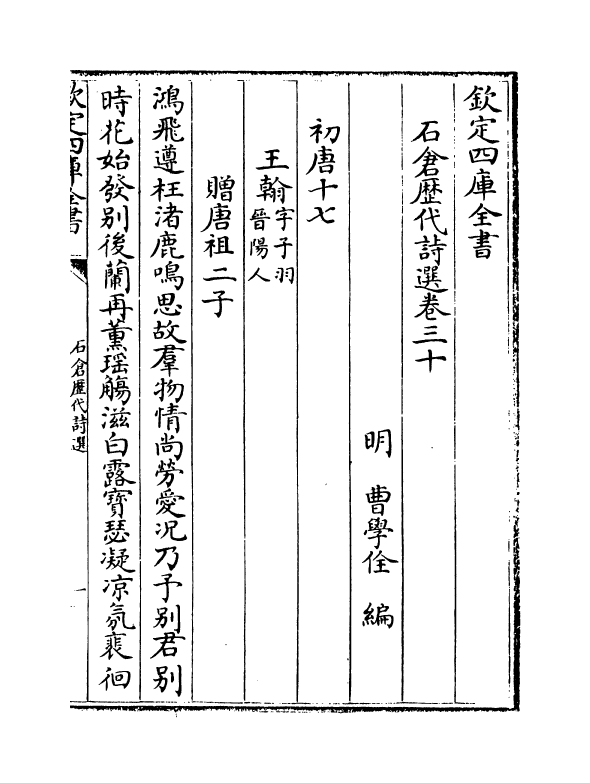 欽定四庫全書
石倉歷代詩選卷三十
明 曹學佺 編
初唐十七
王翰字子羽
晉陽人
贈唐祖二子
鴻飛遵枉渚鹿鳴思故羣物情尚勞愛况乃予別君別
時花始發別後蘭再薰瑶觴滋白露寶瑟凝凉氛裵徊
欽定四庫全書
石倉歷代詩選
一